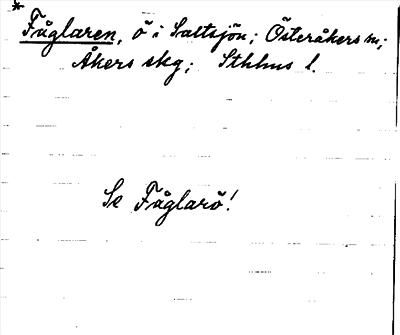 *
Fåglaren, ö i Saltsjön; Österåkers sn;
Åkers skg; Sthlms l.
Se Fåglarö!